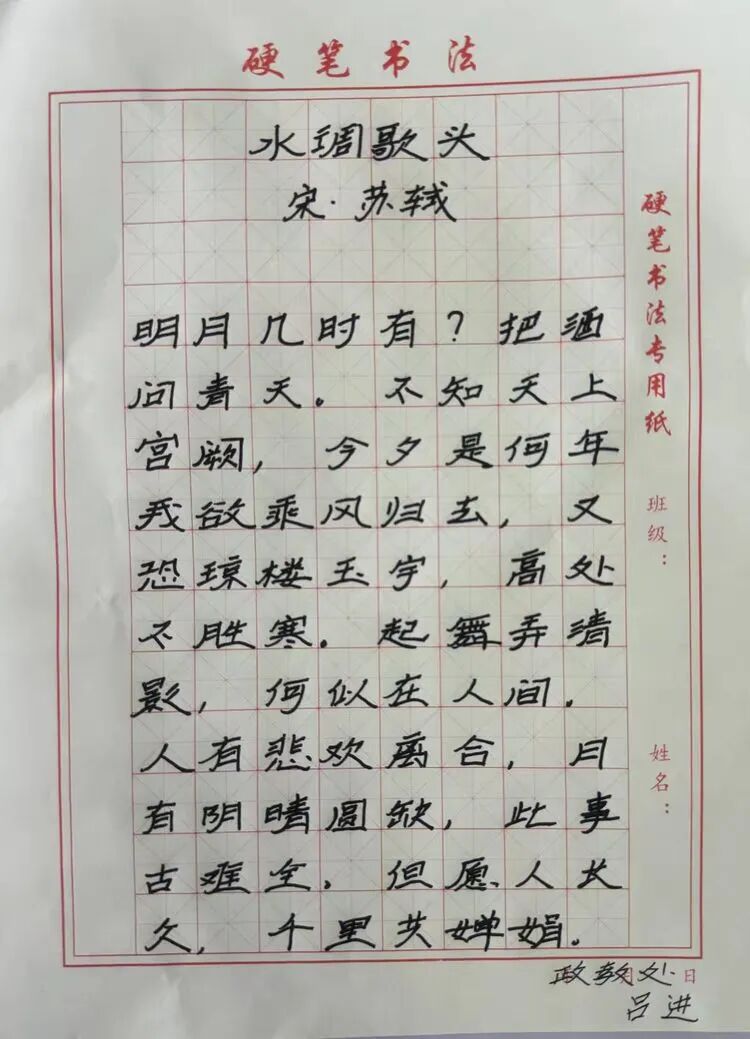 硬笔书法
水调歌头
宋·苏轼
明月几时有?把酒
问青天。不知天上
宫阙,今夕是何年
我欲乘风归去,又
恐琼楼玉宇,高处
不胜寒.起舞弄清
影,何似在人间.
人有悲欢离合,月
有阴晴圆缺,此事
古难全.但愿人长
久,千里共婵娟.
硬笔书法专用纸
班级:
姓名:
政教处
日
吕进